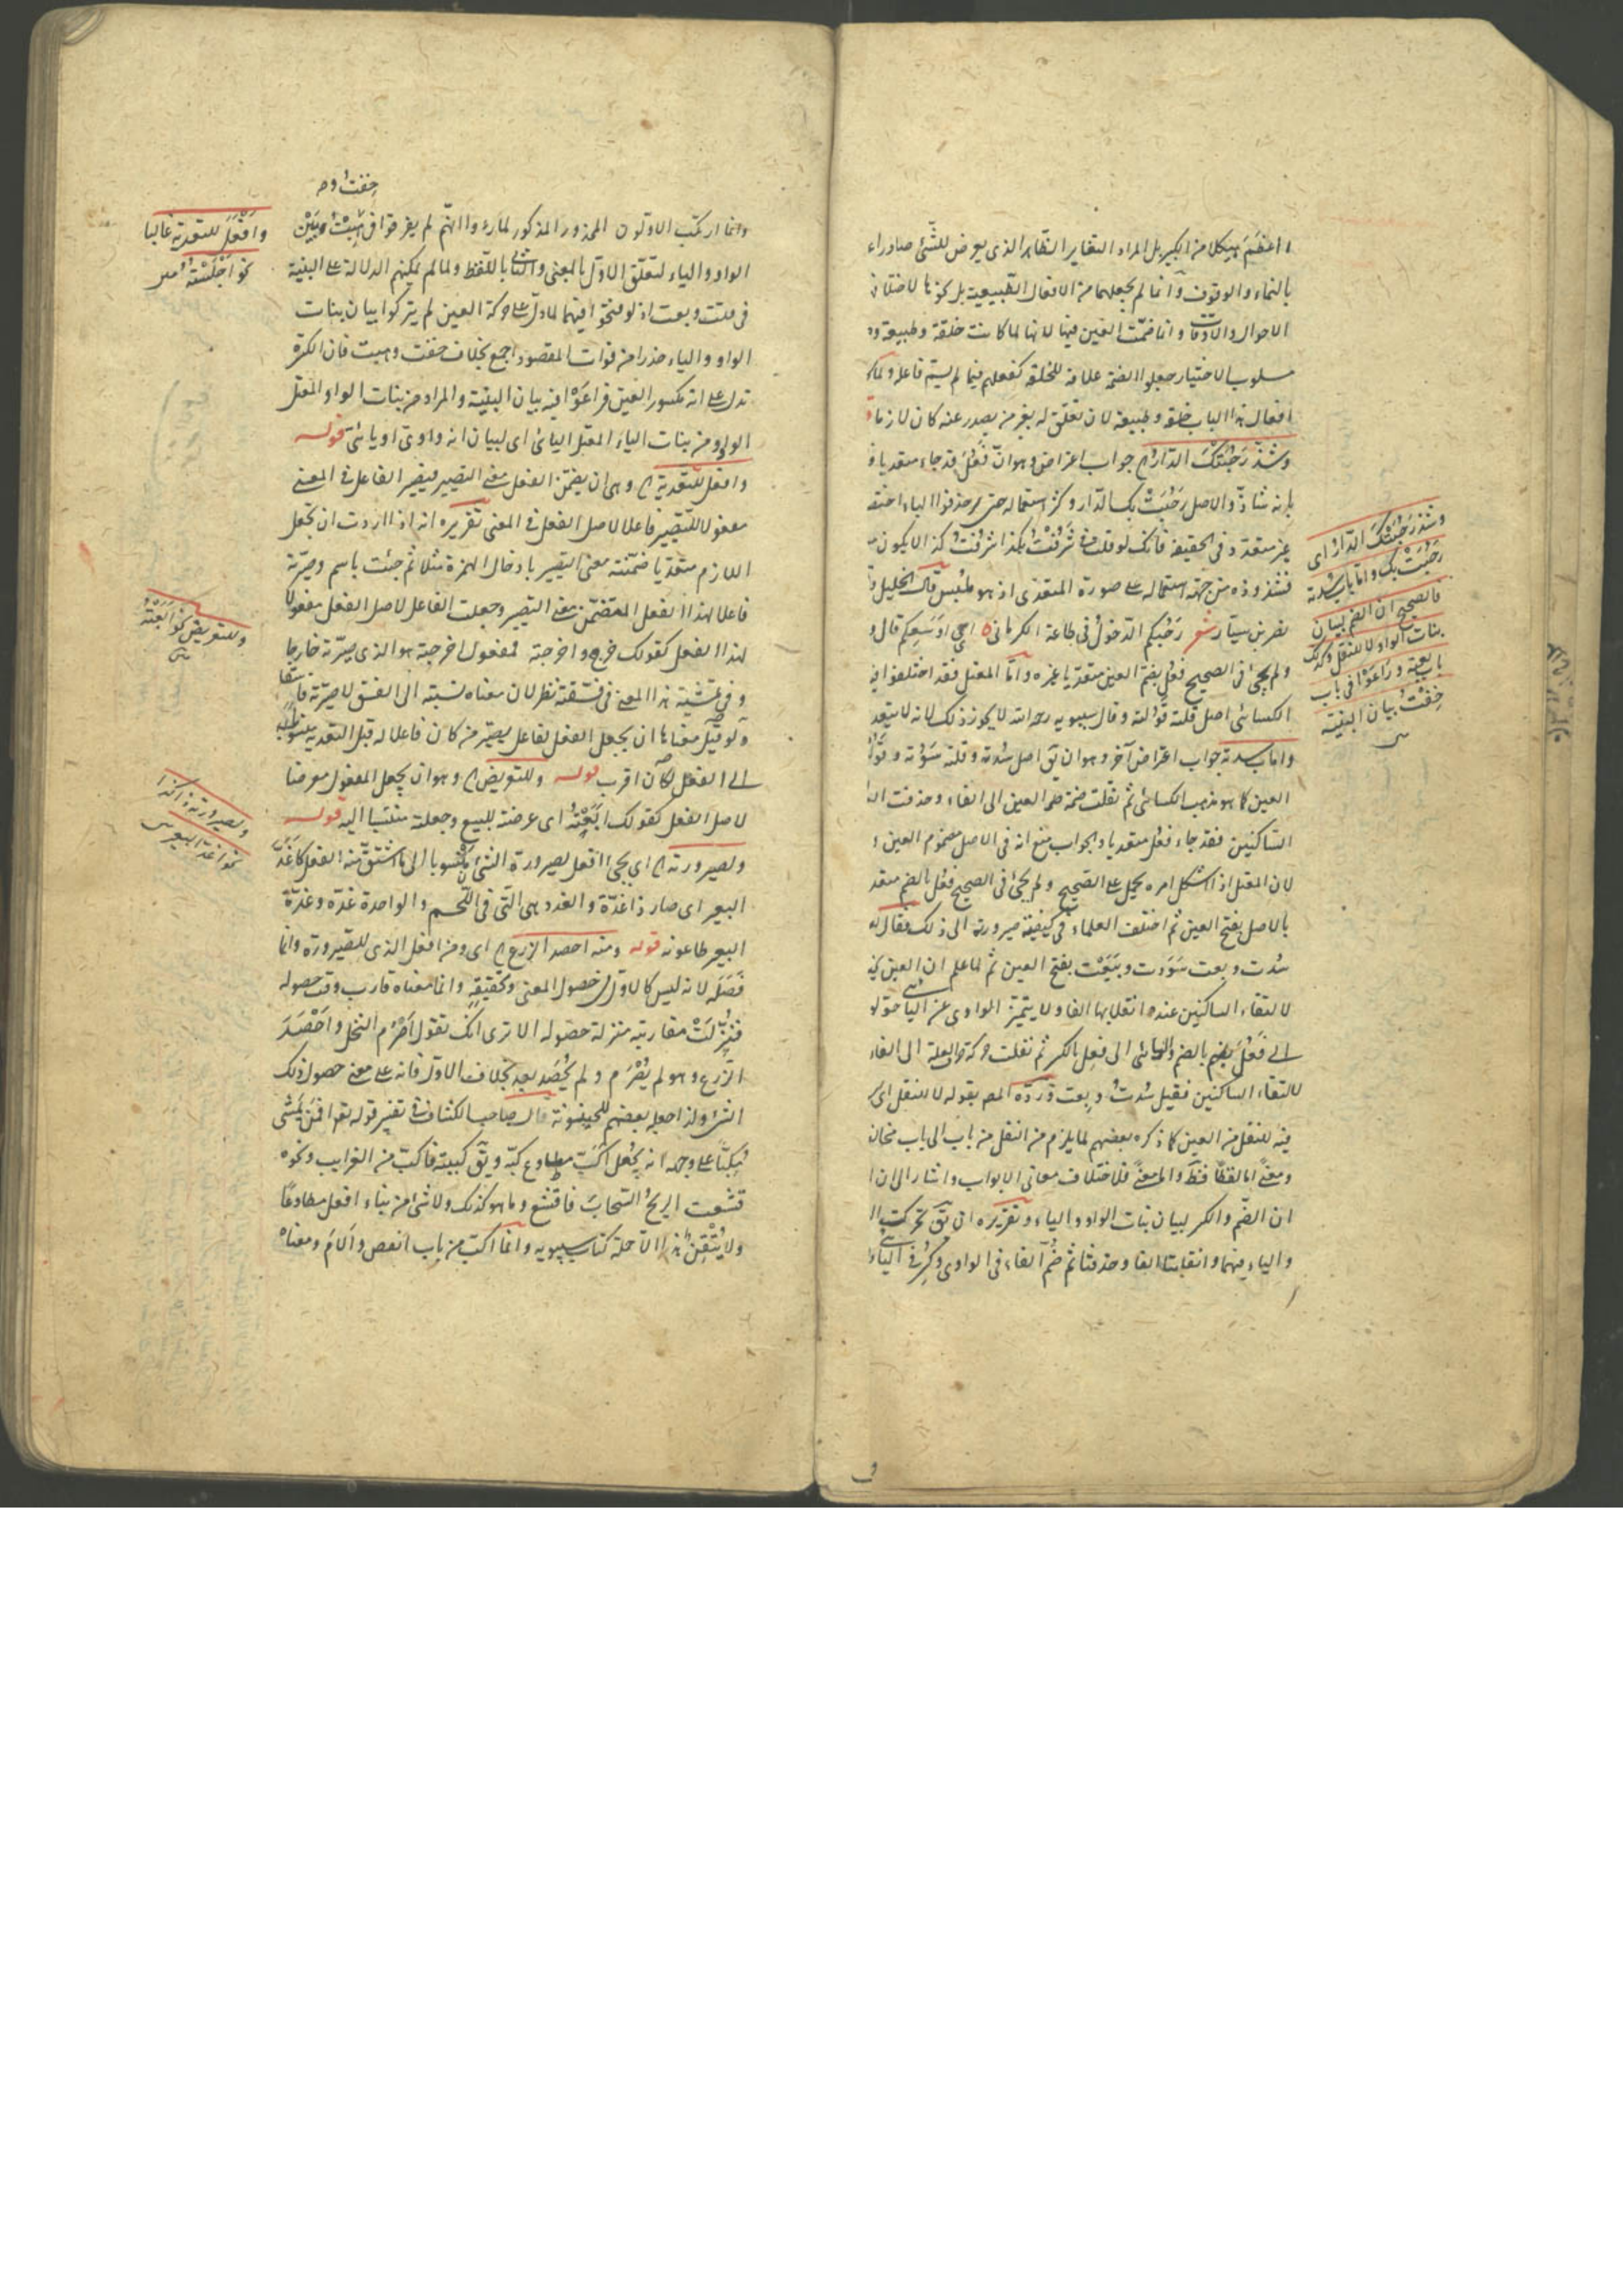 اعظم هيكلا من الكبير بل المراد التغاير الظاهر الذي يعرض للشئ صادراء
بالنماء والوقوف وانما لم يجعلهما من الافعال الطبيعية بل كونها لاختلاف
الاحوال والاوقات وانما ضمت العين فيها لانها لما كانت خلقة وطبيعة
مسلوب الاختيار جعلوا الضمة علامة للخلقة كفعلهم فيما لم يسم فاعله ولما كا
افعال هذا الباب خلقة وطبيعة لان تعلق له بغير من يصدر عنه كان لازما
وشذ رحبتك الدار جواب اعتراض وهو ان فعل قد جاء متعديا
بانه شاذ والاصل رحبت بك الدار وكثر استعماله حتى حذفوا الباء اختصا
غير متعد في الحقيقة فانك لو قلت في شرفت بكذا شرفت كذا لا يكون
فشذوذه من جهة استعماله على صورة المتعدي اذ هو ملتبس قال الخليل
نصر بن سيار شعر رحبكم الدخول في طاعة الكرماني اى اوسعكم قال
ولم يجئ في الصحيح فعل بضم العين متعديا غيره واما المعتل فقد اختلفوا فيه
الكسائي اصل قلته قولته وقال سيبويه رحمه الله لا يجوز ذلك لانه لا يتعد
واما باب سدته جواب اعتراض آخر وهو ان يق اصل سدته وقلته سودته وقولته
العين كما هو مذهب الكسائي ثم نقلت ضمة العين الى الفاء وحذفت
الساكنين فقد جاء فعل متعديا والجواب منع انه في الاصل مضموم العين
لان المعتل اذا اشكل امره يحمل على الصحيح ولم يجئ في الصحيح فعل بالضم متعد
بالاصل بفتح العين ثم اختلف العلماء في كيفية صيرورته الى ذلك فقال
سدت وبعت سودت وبيعت بفتح العين ثم لما علم ان العين
لالتقاء الساكنين عند انقلابها الفا ولا يتميز الواوي عن اليائي حولو
الى فعل بالضم واليائي الى فعل بالكسر ثم نقلت حركة العلة الى الفاء
لالتقاء الساكنين فقيل سدت وبعت ورده المص بقوله لا للنقل اى
فيه للنقل من العين كما ذكره بعضهم لما يلزم من النقل من باب الى باب
ومعنى اما لفظا فظ واما معنى فلاختلاف معاني الابواب واشار الى ان
ان الضم والكسر لبيان بنات الواو والياء وتقريره ان يق تحركت
والياء فيهما وانقلبتا الفا وحذفتا ثم ضم الفاء في الواوي وكسر في اليائي
وشذ رحبتك الدار اى
رحبت بك واما باب سدته
فالصحيح ان الضم لبيان
بنات الواو لا للنقل وكذلك
باب بعته وراعوا في باب
خفت بيان البنية
خفت و
وانما ارتكب الاولون المحذور المذكور لما رءوا انهم لم يفرقوا في هبت وبين
الواو والياء لتعلق الاول بالمعنى والثاني باللفظ ولما لم يمكنهم الدلالة على البنية
في قلت وبعت اذ لو فتحوا فيهما لما دل على حركة العين لم يتركوا بيان بنات
الواو والياء حذرا من فوات المقصود اجمع بخلاف خفت وهبت فان الكسرة
تدل على انه مكسور العين فراعوا فيه بيان البنية والمراد من بنات الواو المعتل
الواو ومن بنات الياء المعتل اليائي اى لبيان انه واوي او يائي قوله
وافعل للتعدية وهي ان يضمن الفعل معنى التصيير فيصير الفاعل في المعنى
مفعولا للتصيير فاعلا لاصل الفعل في المعنى تقريره انه اذا اردت ان تجعل
اللازم متعديا ضمنته معنى التصيير بادخال الهمزة مثلا ثم جئت باسم وصيرته
فاعلا لهذا الفعل المتضمن معنى التصيير وجعلت الفاعل لاصل الفعل مفعولا
لهذا الفعل كقولك خرج واخرجته فمفعول اخرجته هو الذي صيرته خارجا
وفي تمشية هذا المعنى في فسقته نظر لان معناه نسبته الى الفسق لا صيرته فاسقا
ولو قيل معناها ان يجعل الفعل لفاعل يصير من كان فاعلا له قبل التعدية منسوبا
الى الفعل لكان اقرب قوله وللتعريض وهو ان يجعل المفعول معرضا
لاصل الفعل كقولك ابعته اى عرضته للبيع وجعلته منتسبا اليه قوله
ولصيرورته اى يجئ افعل لصيرورة الشئ منسوبا الى ما اشتق منه الفعل كاغد
البعير اى صار ذا غدة والغدد هي التي في اللحم والواحدة غدة وغدة
البعير طاعونه قوله ومنه احصد الزرع اى ومن افعل الذي للصيرورة وانما
فصله لانه ليس كالاول في حصول المعنى وتحقيقه وانما معناه قارب وقت حصوله
فنزلت مقاربته منزلة حصوله الا ترى انك تقول اصرم النخل واحصد
الزرع وهو لم يصرم ولم يحصد بعد بخلاف الاول فانه على معنى حصول ذلك
الشئ ولذا جعله بعضهم للحينونة قال صاحب الكشاف في تفسير قوله تعا افمن يمشي
مكبا على وجهه انه يجعل اكب مطاوع كبه ويق كببته فاكب من الغرايب ونحوه
قشعت الريح السحاب فاقشع وما هو كذلك ولا شئ من بناء افعل مطاوعا
ولا يتقن هذا الا حملة كتاب سيبويه وانما اكب من باب انفض والام ومعناه
وافعل للتعدية غالبا
نحو اجلسته
وللتعريض نحو ابعته
ولصيرورته ذا كذا
نحو اغد البعير